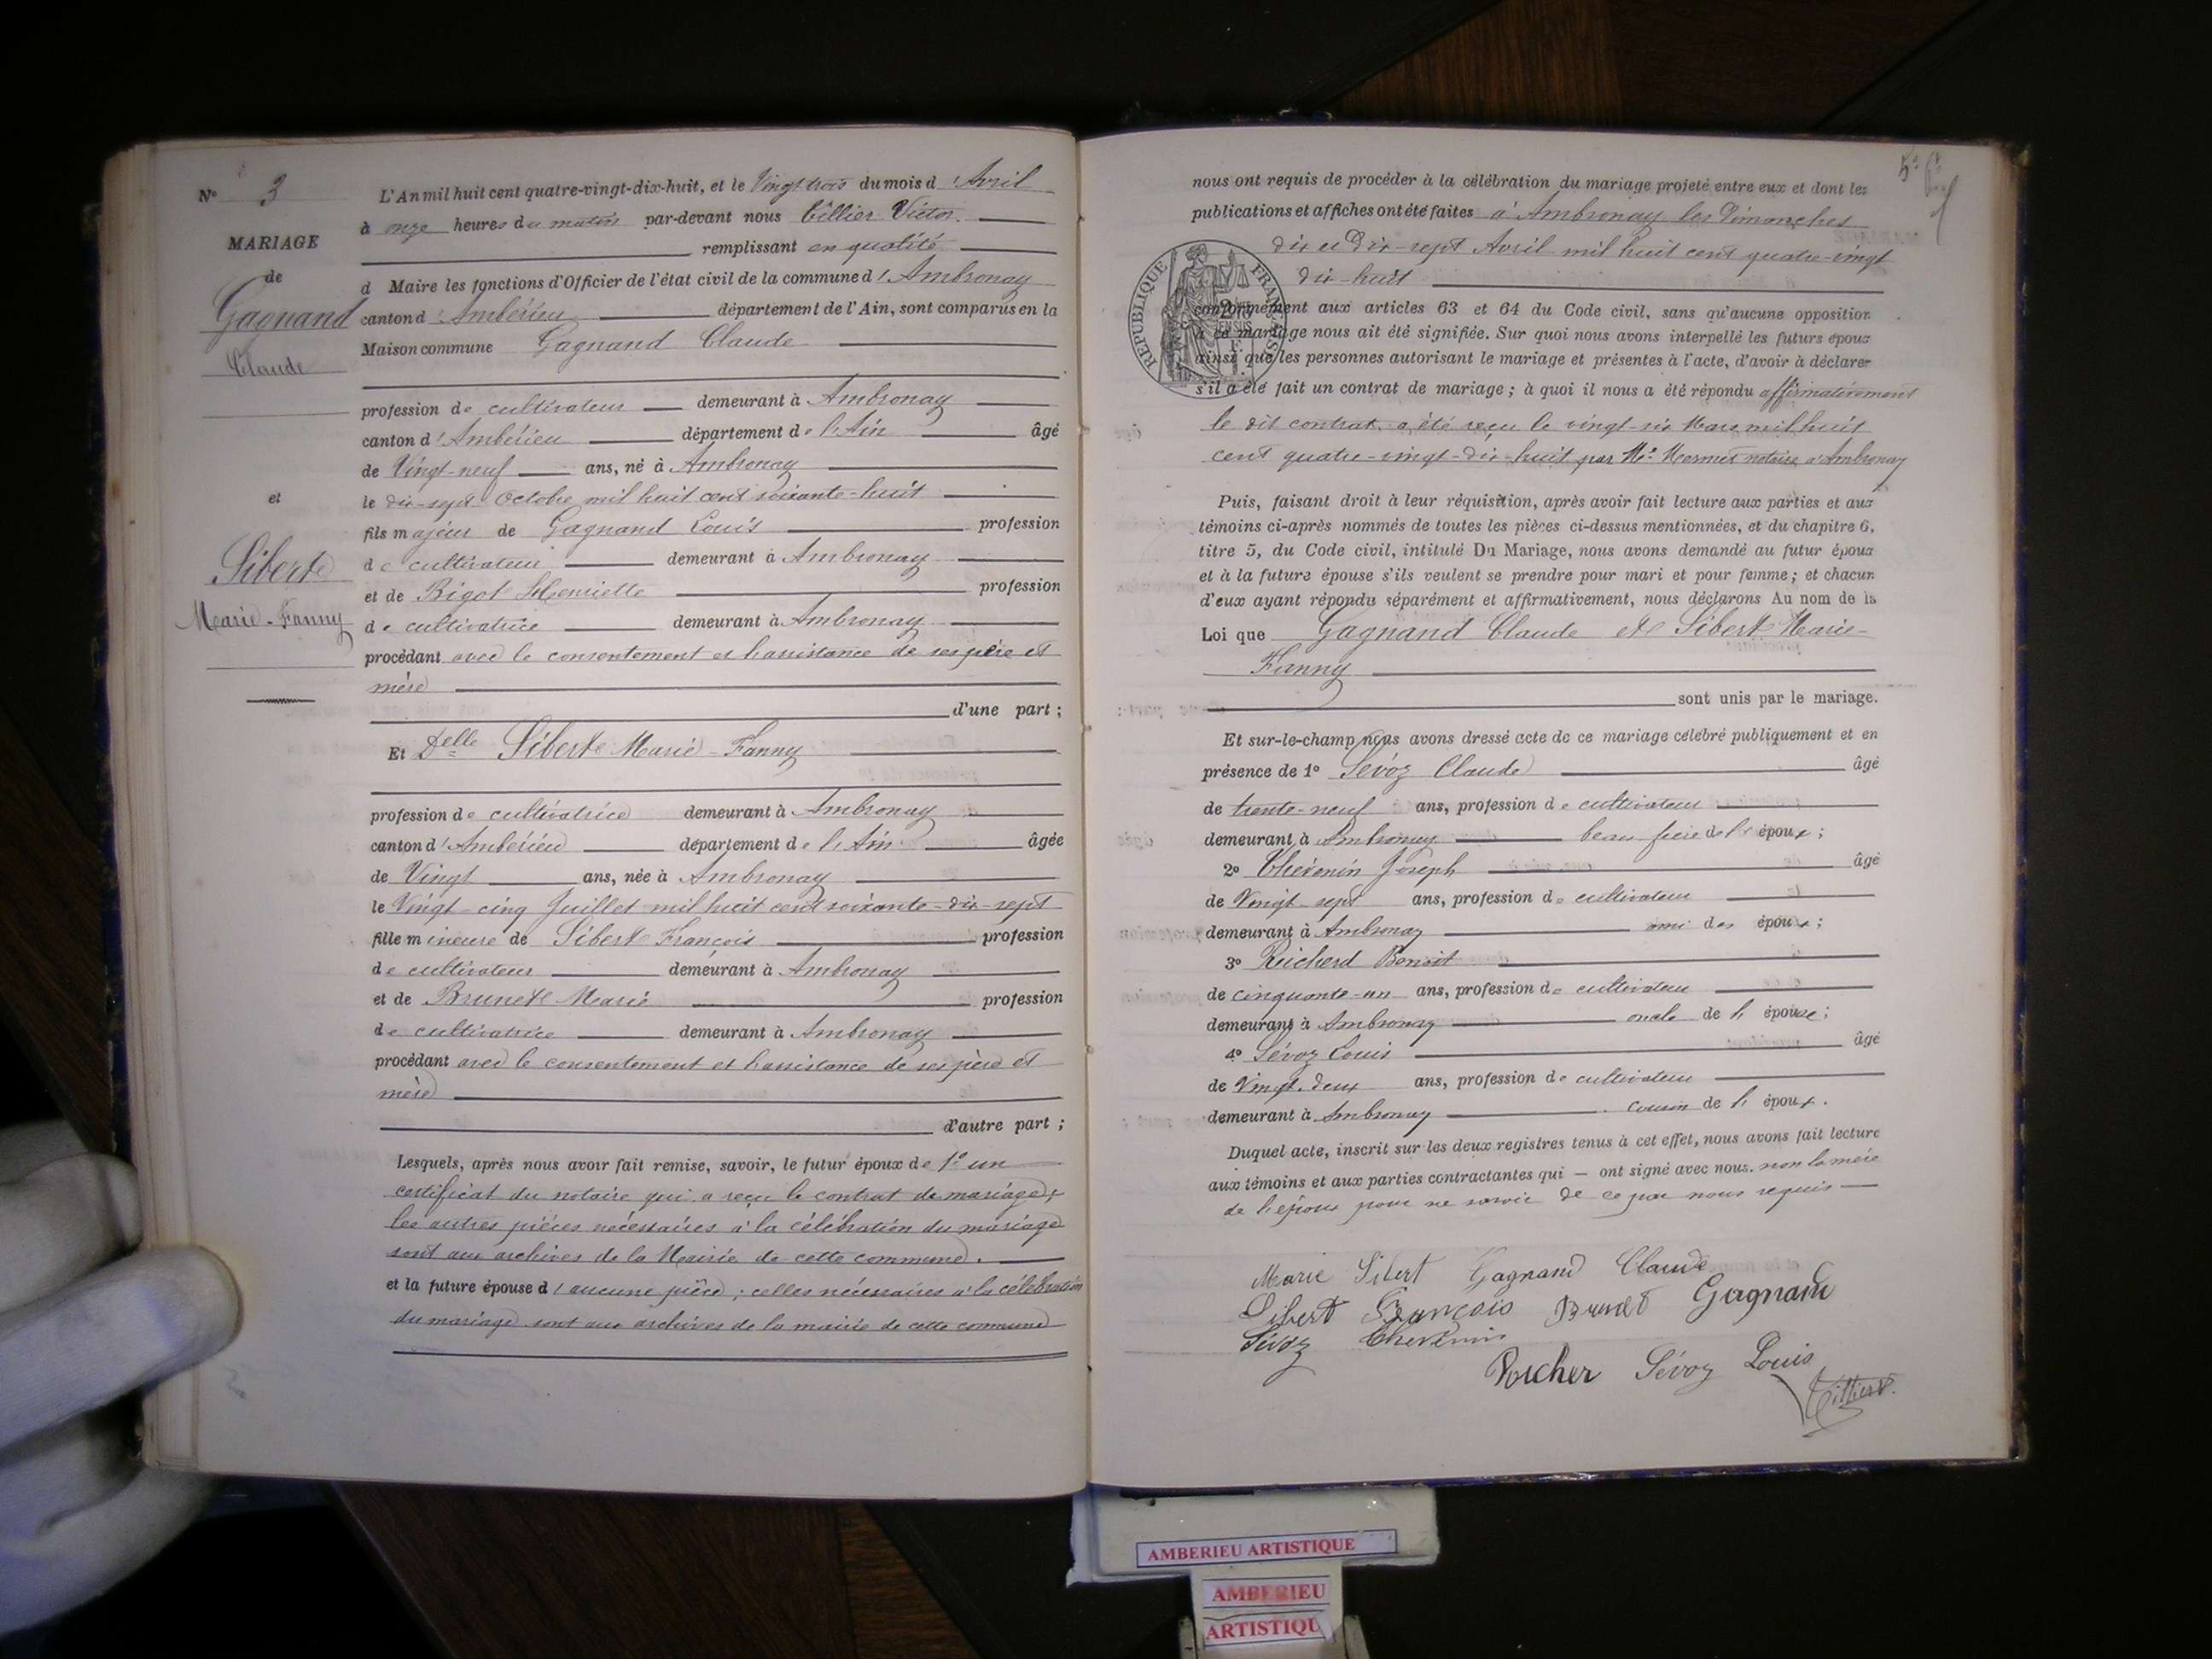 N° 3
MARIAGE
de
Gagnand
Claude
et
Sibert
Marie-Fanny
L'An mil huit cent quatre-vingt-dix-huit, et le Vingt trois du mois d'Avril
à onze heures du matin par-devant nous Tillier Victor.
remplissant en qualité
d Maire les fonctions d'Officier de l'état civil de la commune d'Ambronay
canton d'Ambérieu département de l'Ain, sont comparus en la
Maison commune Gagnand Claude
profession de cultivateur demeurant à Ambronay
canton d'Ambérieu département de l'Ain âgé
de Vingt-neuf ans, né à Ambronay
le dix-sept Octobre mil huit cent soixante-huit
fils majeur de Gagnand Louis profession
de cultivateur demeurant à Ambronay
et de Bigot Henriette profession
de cultivatrice demeurant à Ambronay
procédant avec le consentement et l'assistance de ses père et
mère
d'une part ;
Et Delle Sibert Marie-Fanny
profession de cultivatrice demeurant à Ambronay
canton d'Ambérieu département de l'Ain âgée
de Vingt ans, née à Ambronay
le Vingt-cinq Juillet mil huit cent soixante-dix-sept
fille mineure de Sibert François profession
de cultivateur demeurant à Ambronay
et de Brunet Marie profession
de cultivatrice demeurant à Ambronay
procédant avec le consentement et l'assistance de ses père et
mère
d'autre part ;
Lesquels, après nous avoir fait remise, savoir, le futur époux de 1° un
certificat du notaire qui a reçu le contrat de mariage;
les autres pièces nécessaires à la célébration du mariage
sont aux archives de la Mairie de cette commune.
et la future épouse d'aucune pièce ; celles nécessaires à la célébration
du mariage sont aux archives de la mairie de cette commune
nous ont requis de procéder à la célébration du mariage projeté entre eux et dont les
publications et affiches ont été faites à Ambronay les Dimanches
dix et Dix-sept Avril mil huit cent quatre-vingt
dix-huit
conformément aux articles 63 et 64 du Code civil, sans qu'aucune opposition
à ce mariage nous ait été signifiée. Sur quoi nous avons interpellé les futurs époux
ainsi que les personnes autorisant le mariage et présentes à l'acte, d'avoir à déclarer
s'il a été fait un contrat de mariage ; à quoi il nous a été répondu affirmativement
le dit contrat a été reçu le vingt-six Mars mil huit
cent quatre-vingt-dix-huit par Me Mermet notaire à Ambronay
REPUBLIQUE FRANÇAISE
Puis, faisant droit à leur réquisition, après avoir fait lecture aux parties et aux
témoins ci-après nommés de toutes les pièces ci-dessus mentionnées, et du chapitre 6,
titre 5, du Code civil, intitulé Du Mariage, nous avons demandé au futur époux
et à la future épouse s'ils veulent se prendre pour mari et pour femme ; et chacun
d'eux ayant répondu séparément et affirmativement, nous déclarons Au nom de la
Loi que Gagnand Claude et Sibert Marie-
Fanny
sont unis par le mariage.
Et sur-le-champ nous avons dressé acte de ce mariage célébré publiquement et en
présence de 1° Sévoz Claude âgé
de trente-neuf ans, profession de cultivateur
demeurant à Ambronay beau frère de l'époux ;
2° Thévenin Joseph âgé
de Vingt-sept ans, profession de cultivateur
demeurant à Ambronay ami des époux ;
3° Benoit
de cinquante-un ans, profession de cultivateur
demeurant à Ambronay oncle de l'épouse ;
4° Sévoz Louis âgé
de Vingt-deux ans, profession de cultivateur
demeurant à Ambronay cousin de l'époux.
Duquel acte, inscrit sur les deux registres tenus à cet effet, nous avons fait lecture
aux témoins et aux parties contractantes qui — ont signé avec nous. non la mère
de l'époux pour ne savoir de ce par nous requis
Marie Sibert Gagnand Claude
Sibert François Brunet Gagnand
Sévoz Thévenin
Sévoz Louis
Tillier V.
AMBERIEU ARTISTIQUE
AMBERIEU
ARTISTIQU